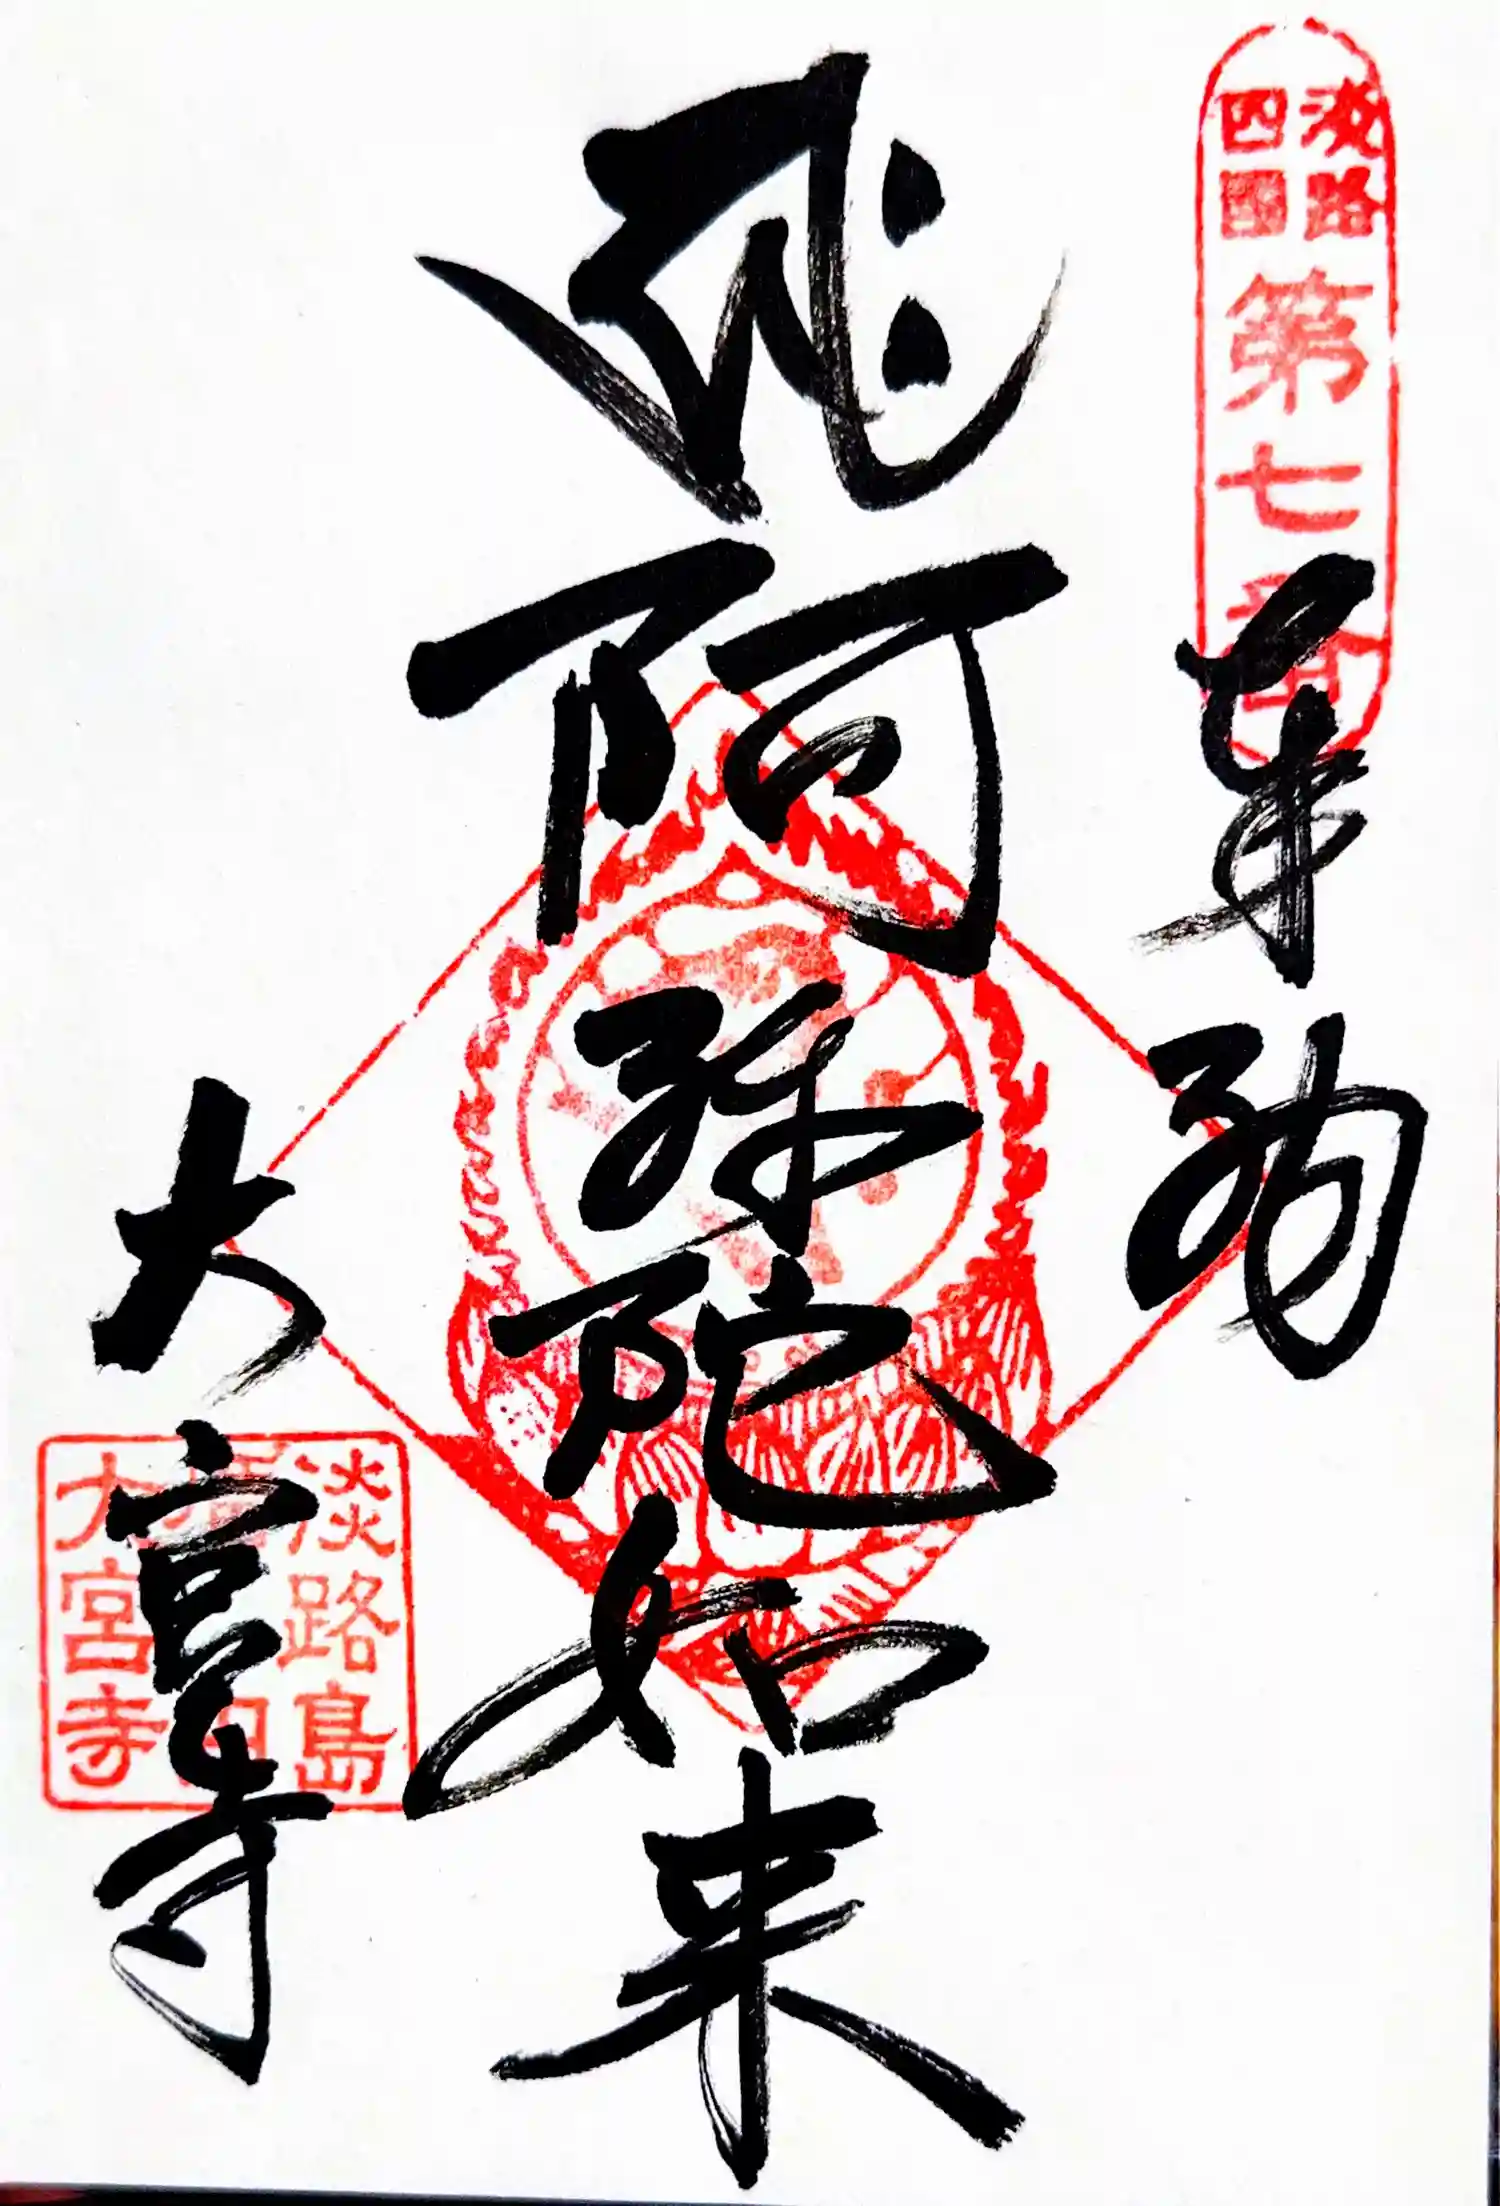 淡路
四國
第七番
奉納
𑖮𑖿𑖨𑖱𑖾
阿弥陀如来
大宮寺
淡路島
大宮寺